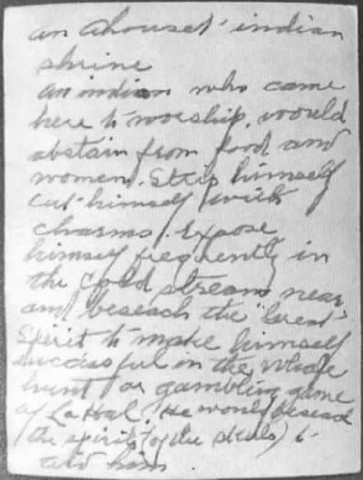 an Ahouset indian
shrine
an indian who came
here to worship, would
abstain from food and
women. Strip himself
cut himself with
charms. Expose
himself frequently in
the cold stream near
and beseach the "Great"
Spirit to make himself
successful in the whale
hunt or gambling game
of La Hal. He would beseach
the spirits (of the skulls) to
aid him.